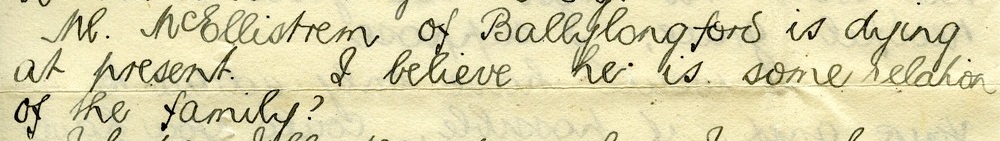 M. McEllistrem of Ballylongford is dying
at present. I believe he is some relation
of the family?